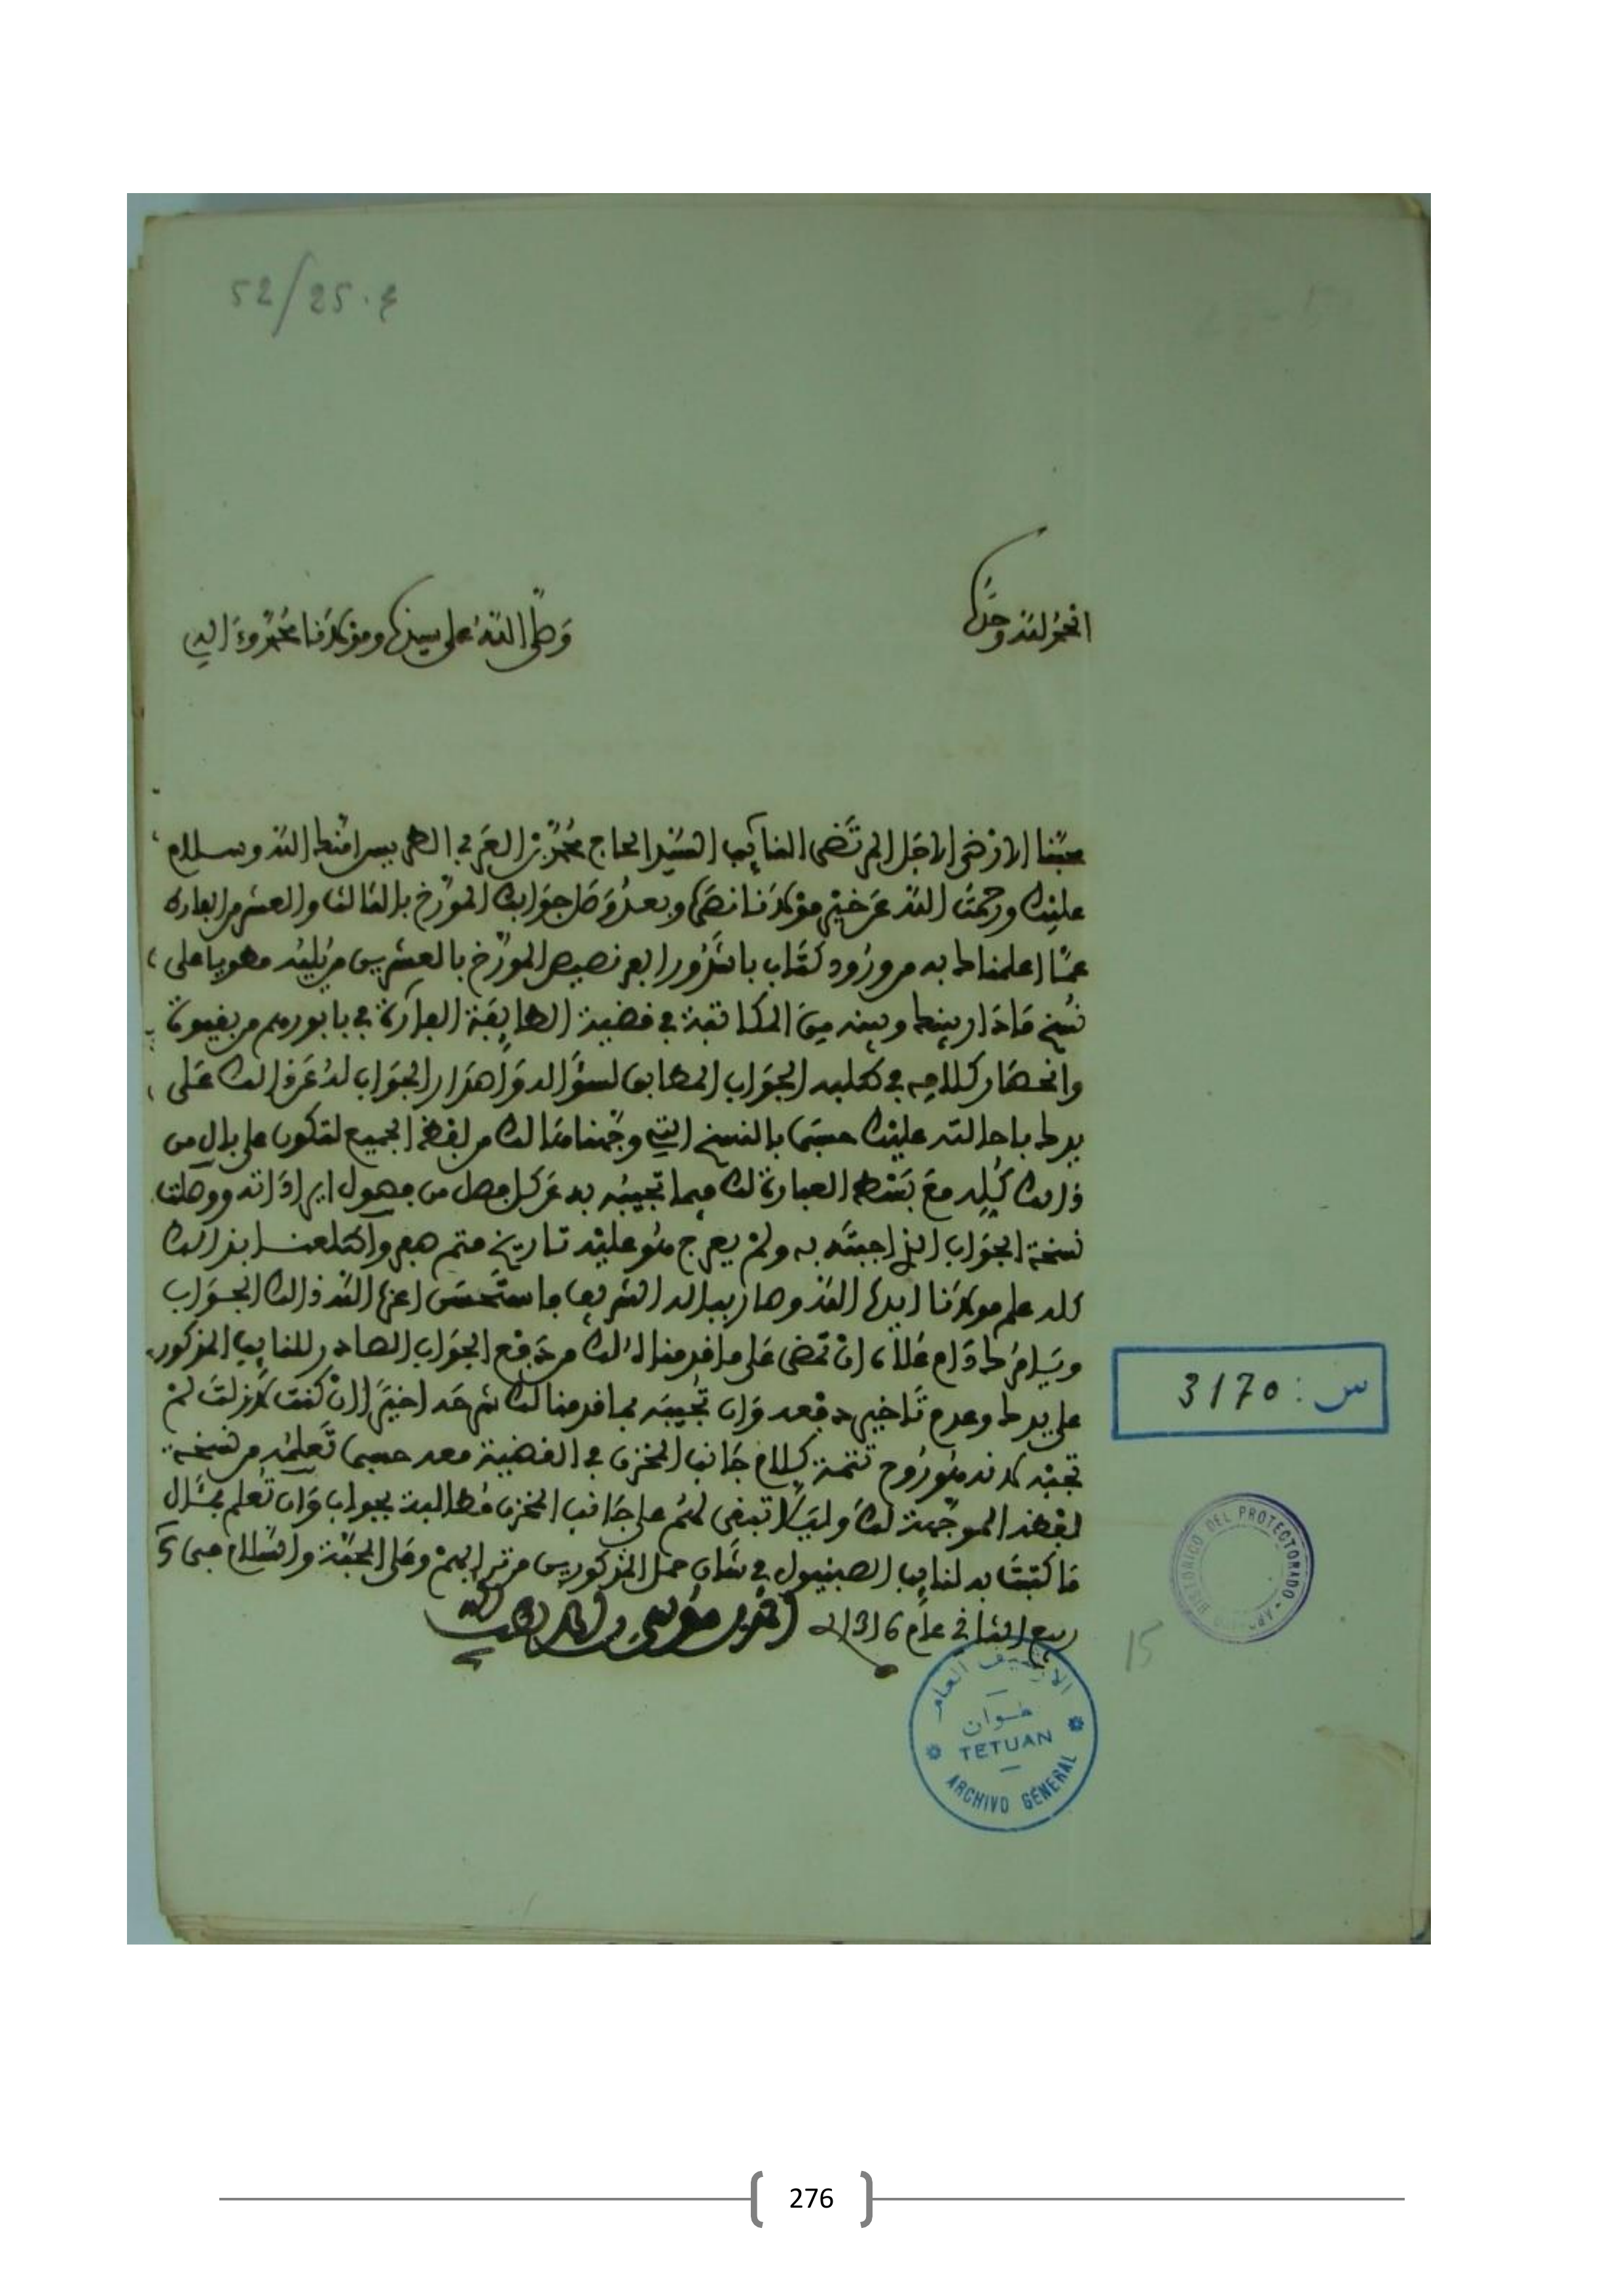 52/25.4
الحمد لله وحده
وصلى الله على سيدنا ومولانا محمد وءاله
محبنا الارضى الاجل المرتضى النايب السيد الحاج محمد بن العربي الطريس امنك الله وسلام
عليك ورحمت الله عن خير مولانا نصره الله وبعد وصل جوابك المورخ بالثالث والعشر من الفارط
عما اعلمناك به من ورود كتاب باشدور الفرنصيص المورخ بالعشرين من يليه محتويا على
نسخ مادار بينك وبينه من المكاتبة في قضية الطايفة الفارة في بابورهم من بقيوة
وانحصار كلامه في طلبه الجواب المطابق لسؤاله واصدار الجواب له عن ذالك على
يدك باحالته عليك حسبما بالنسخ التي وجهنا لك من لفظه الجميع لتكون على بال من
ذالك كله مع بسط العبارة لك فيما تجيبه به عن كل فصل من فصول ايراداته ووصلت
نسخة الجواب الذي اجبته به ولم يعرج هو عليه تاريخ متم صفر واطلعنا بذالك
كله علم مولانا ايده الله وصار بباله الشريف فاستحسن اعزه الله ذالك الجواب
ويامرك دام علاه ان تمضي على ما قدمناه لك من دفع الجواب الصادر للنايب المذكور
على يدك وعدم تاخير دفعه وان تجيبه بما قدمنا لك شرحه اخيرا ان كنت لازلت لم
تجبه لانه هو روح تتمة كلام جانب المخزن في القضية معه حسبما تعلمه من نسخة
لفظه الموجهة لك وليلا تبقى لهم على جانب المخزن مطالبة بجواب وان تعلم بمثال
ما كتبت به لنايب الصبنيول في شان حمل المذكورين مرتين اليهم وعلى المحبة والسلام في 5
ربيع الثاني عام 1316
احمد بن موسى بن احمد لطف الله به
س : 3170
ARCHIVO HISTORICO DEL PROTECTORADO
15
الارشيف العام
تطوان
TETUAN
ARCHIVO GENERAL
276